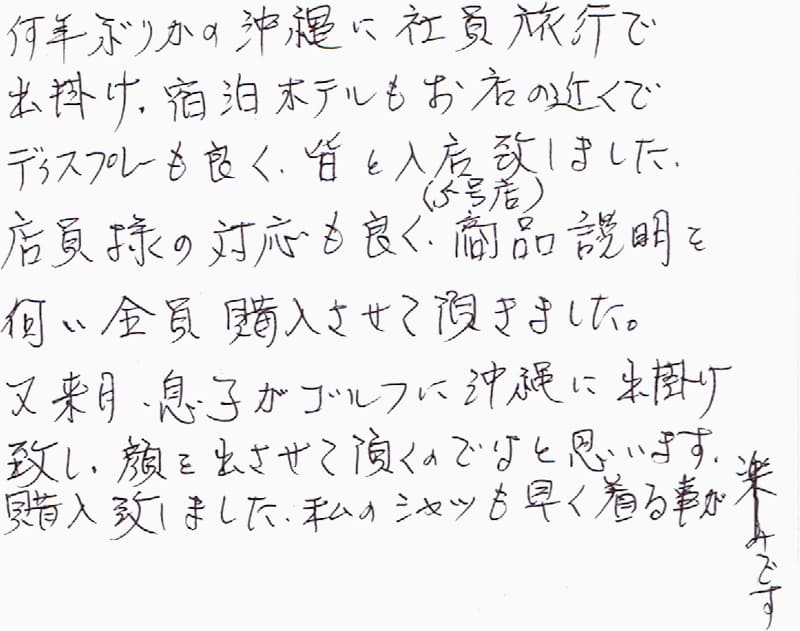 何年ぶりかの沖縄に社員旅行で
出掛け、宿泊ホテルもお店の近くで
ディスプレーも良く、皆と入店致しました、
(5号店)
店員様の対応も良く、商品説明を
伺い全員購入させて頂きました。
又来月、息子がゴルフに沖縄に出掛け
致し、顔を出させて頂くのではと思います、
購入致しました、私のシャツも早く着る事が
楽しみです